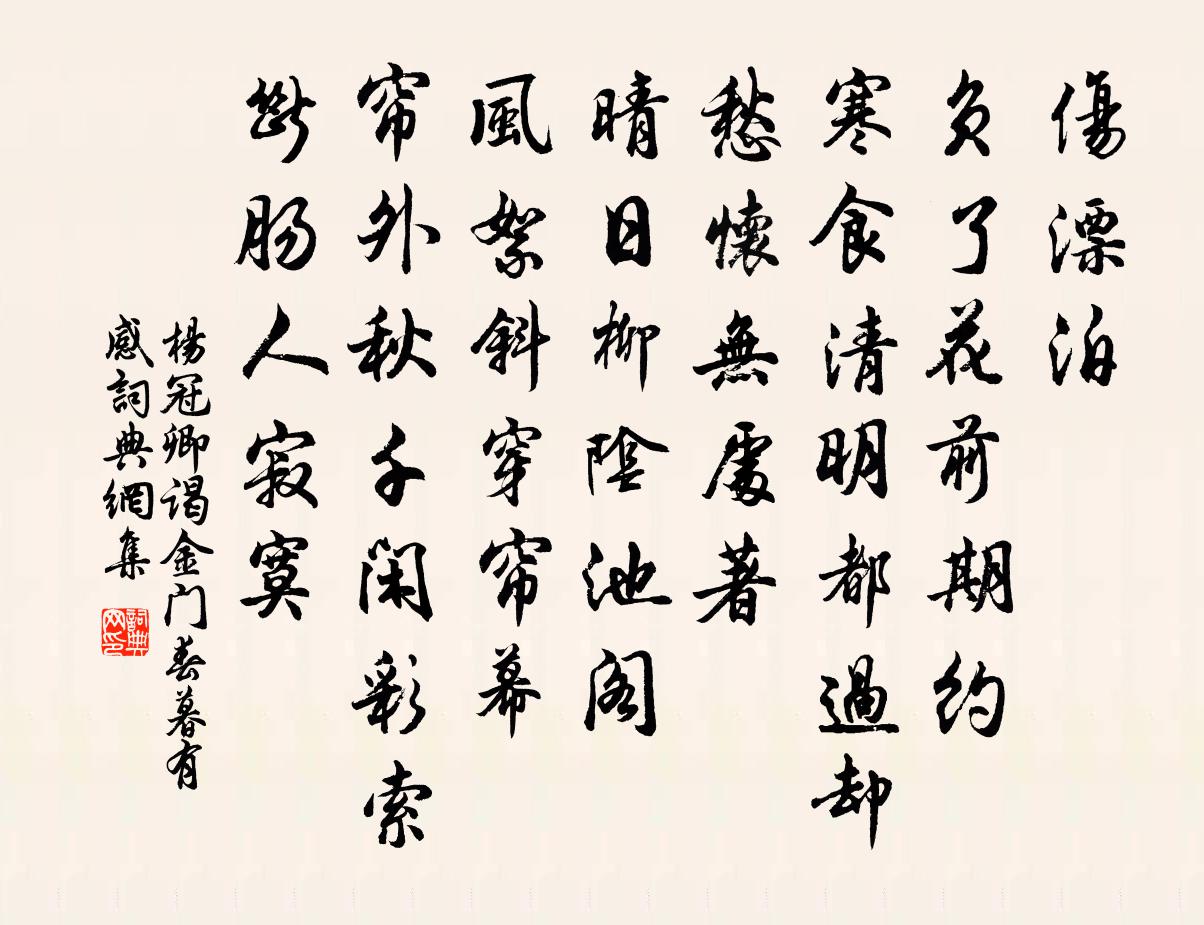 傷漂泊
負了花前期約
寒食清明都過却
愁懷無處著
晴日柳陰池阁
風絮斜穿帘幕
帘外秋千閑彩索
斷肠人寂寞
楊冠卿谒金门春暮有
感詞典網集
詞典
网印